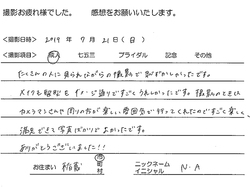 撮影お疲れ様でした。　感想をお願いいたします。
<撮影日時>　2019年 7月 21日(日)
<撮影項目>　成人　七五三　ブライダル　記念　その他
たくさんの人に見られながらの撮影で恥ずかしかったです。
メイクも髪型もイメージ通りですごくうれしかったです。撮影のときも
カメラマンさんや周りの方が楽しい雰囲気で行ってくれたのですごく楽しく
満足できる写真ばかりでよかったです。
ありがとうございました!!
お住まい　稲敷　市　町　村
ニックネーム　イニシャル　N.A